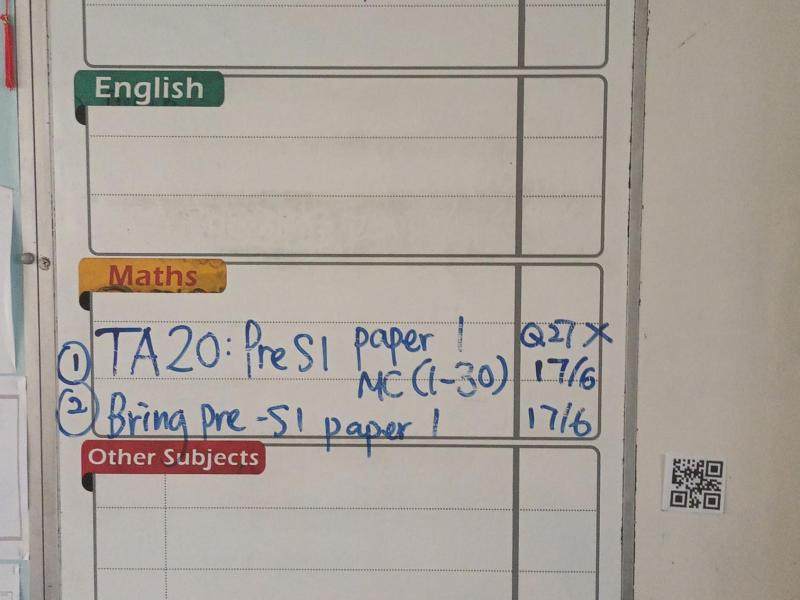 English
Maths
① TA20: Pre S1 paper 1 Q27 X
MC (1-30) 17/6
② Bring pre-S1 paper 1 17/6
Other Subjects